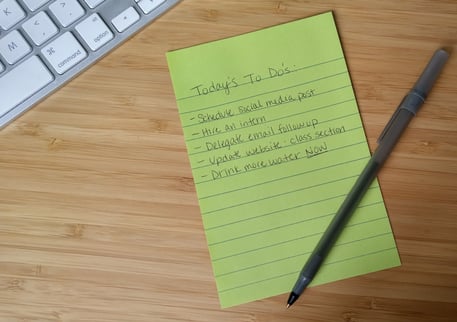 K
M
<
>
?
/
⌘
command
option
Today's To Do's:
- Schedule social media post
- Hire an intern
- Delegate email followup
- Update website: class section
- Drink more water NOW